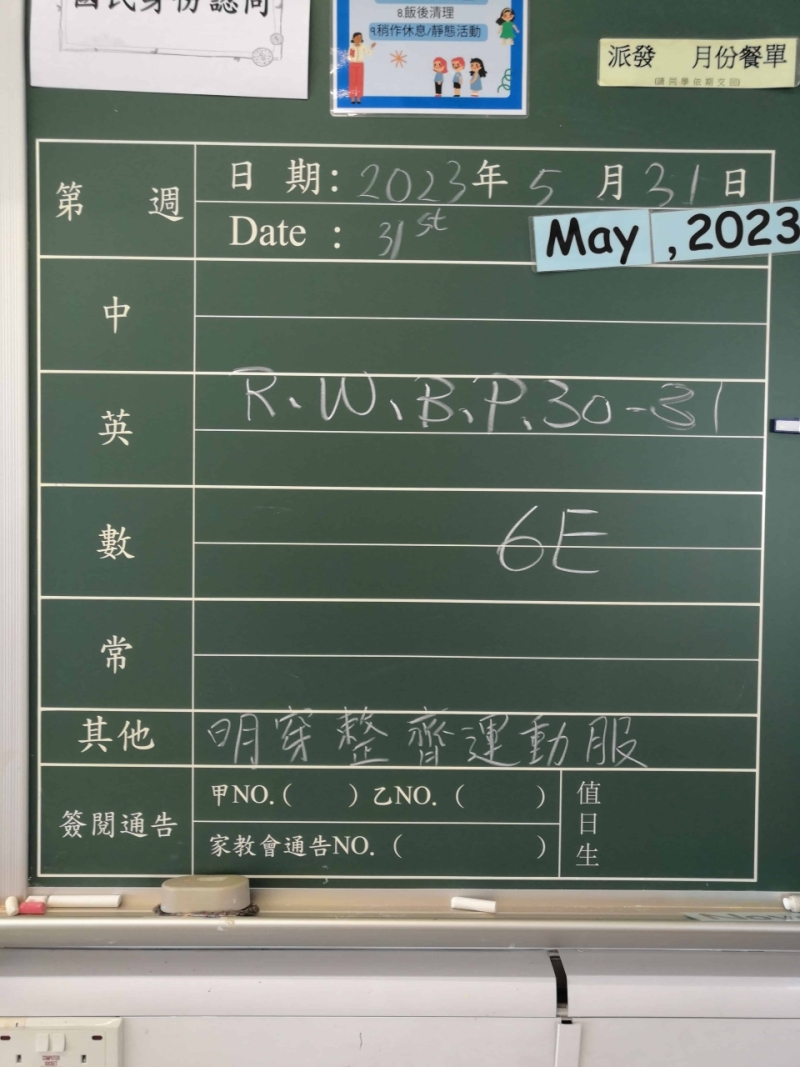 國民身份認同
8.飯後清理
9.稍作休息/靜態活動
派發 月份餐單
(請同學依期交回)
第 週
日 期: 2023年 5 月 31 日
Date : 31st
May ,2023
中
英
R、W、B、P.30-31
數
6E
常
其他
明穿整齊運動服
簽閱通告
甲NO.( ) 乙NO. ( )
家教會通告NO. ( )
值日生